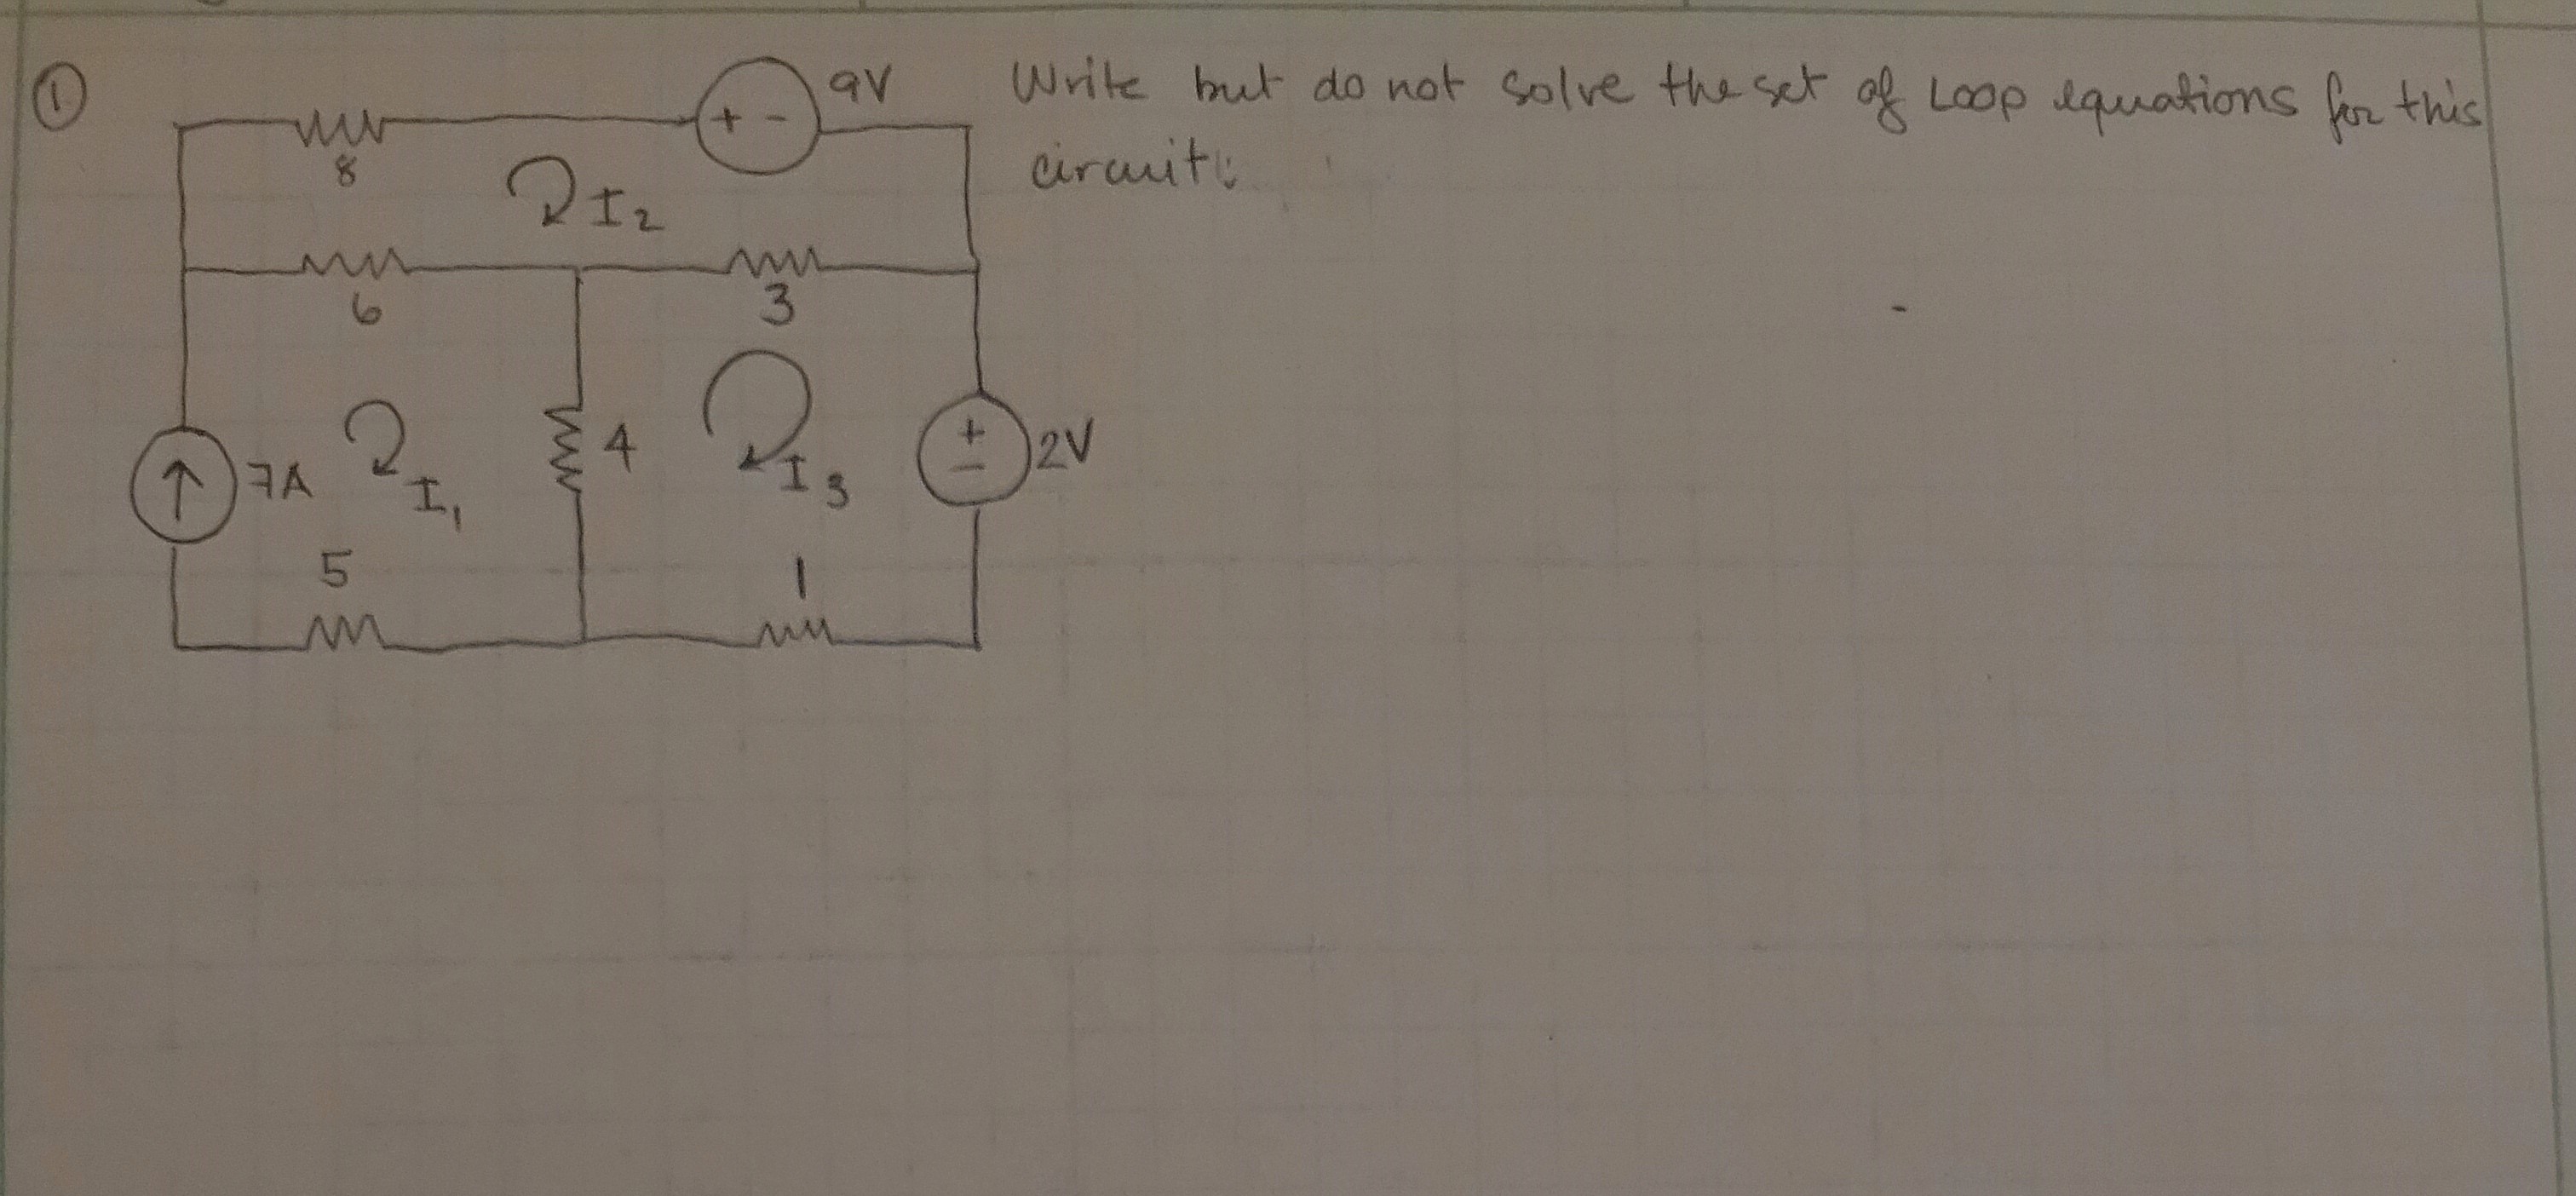 ① 9V Write but do not solve the set of Loop equations for this
circuit:
+ -
8
I2
6 3
7A I1 4 I3 + - 2V
5 1